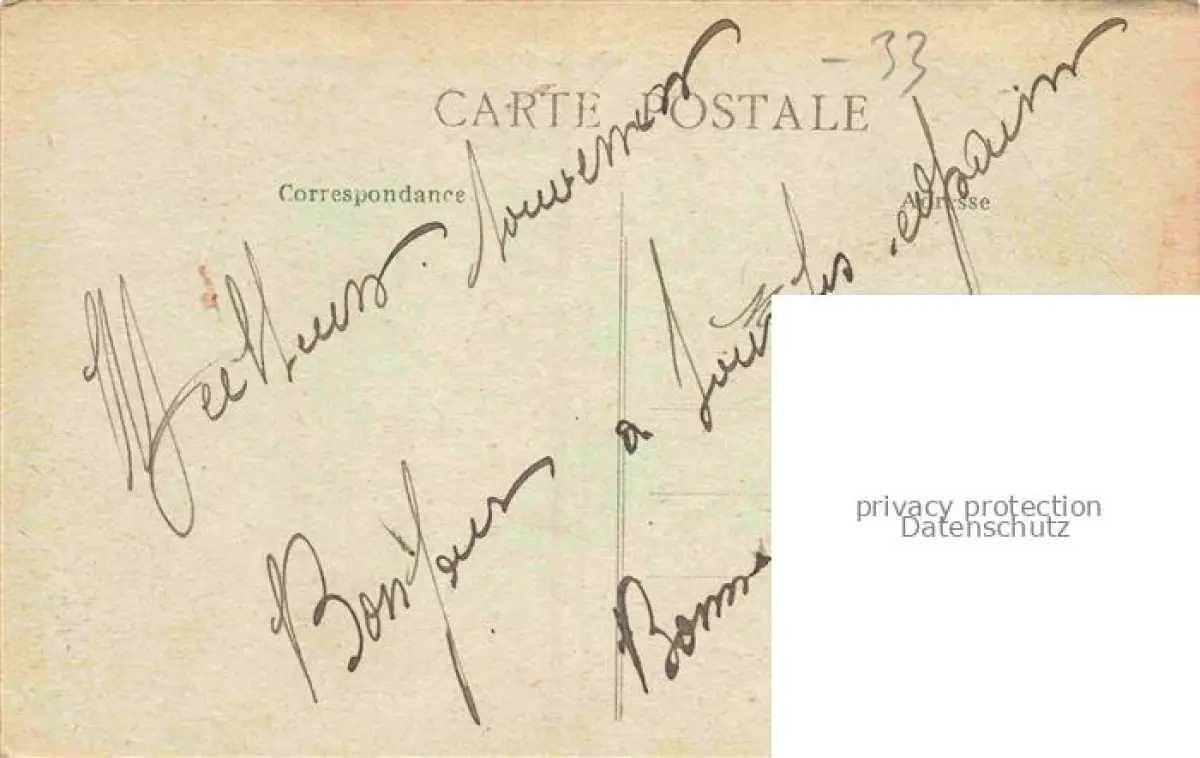 - 33
CARTE POSTALE
Correspondance
Adresse
Meilleurs souvenirs
Bonjour a toutes
Bonne
privacy protection
Datenschutz